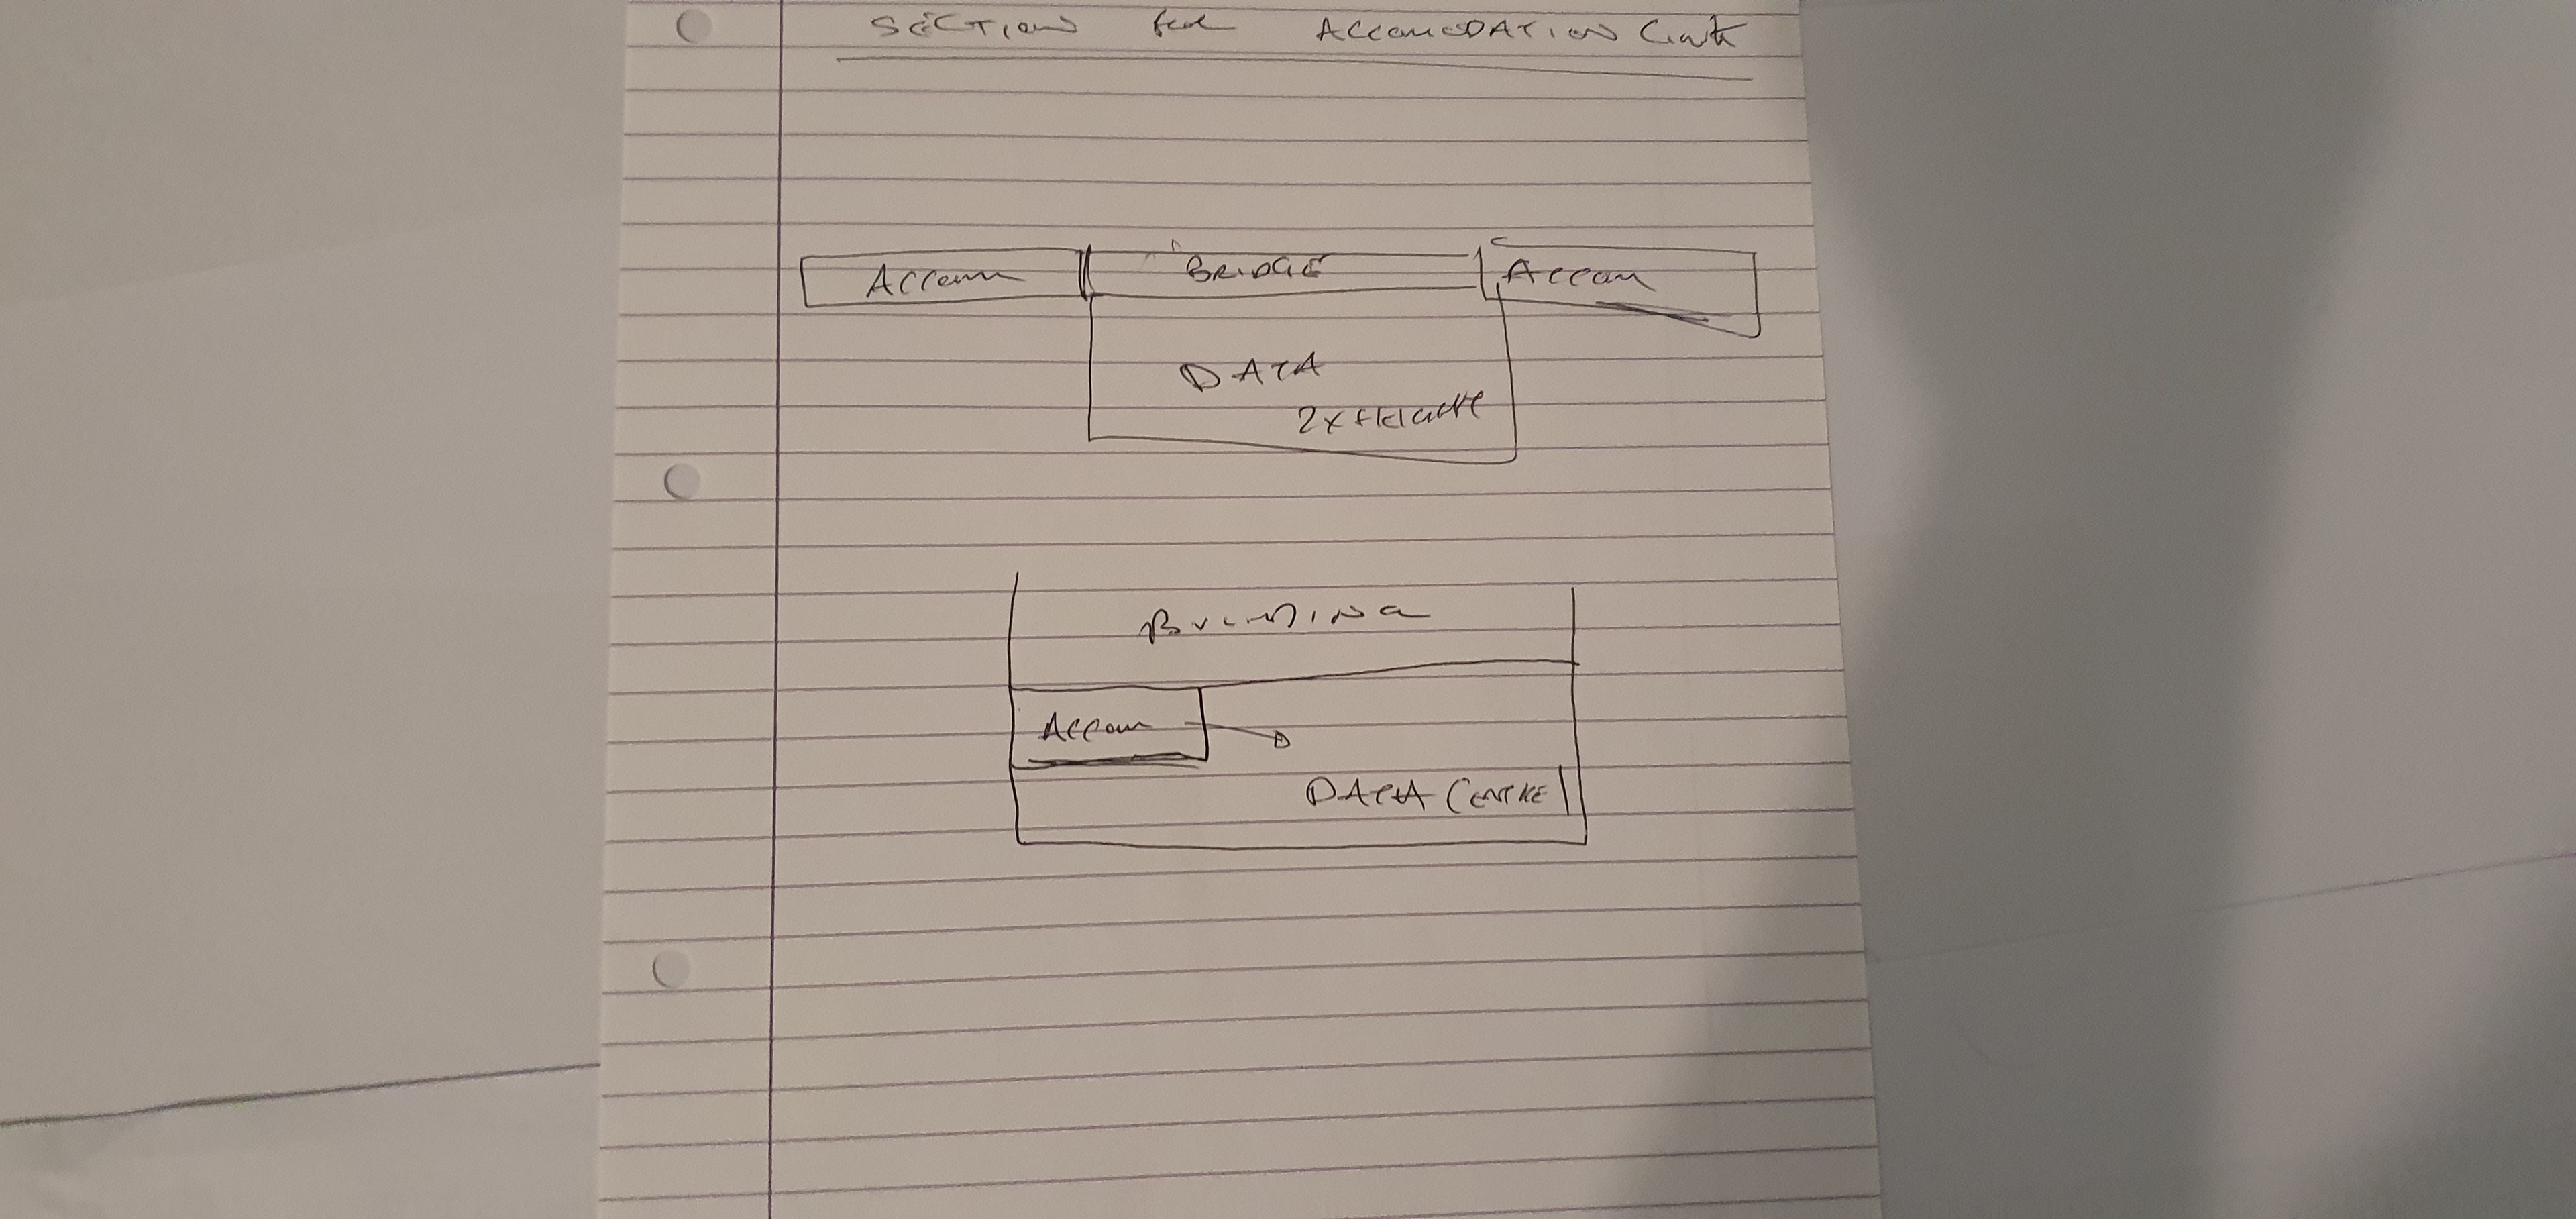 SECTION for ACCOMODATION Link
Accom BRIDGE Accom
DATA
2x HEIGHT
BUILDING
Accom
DATA CENTRE